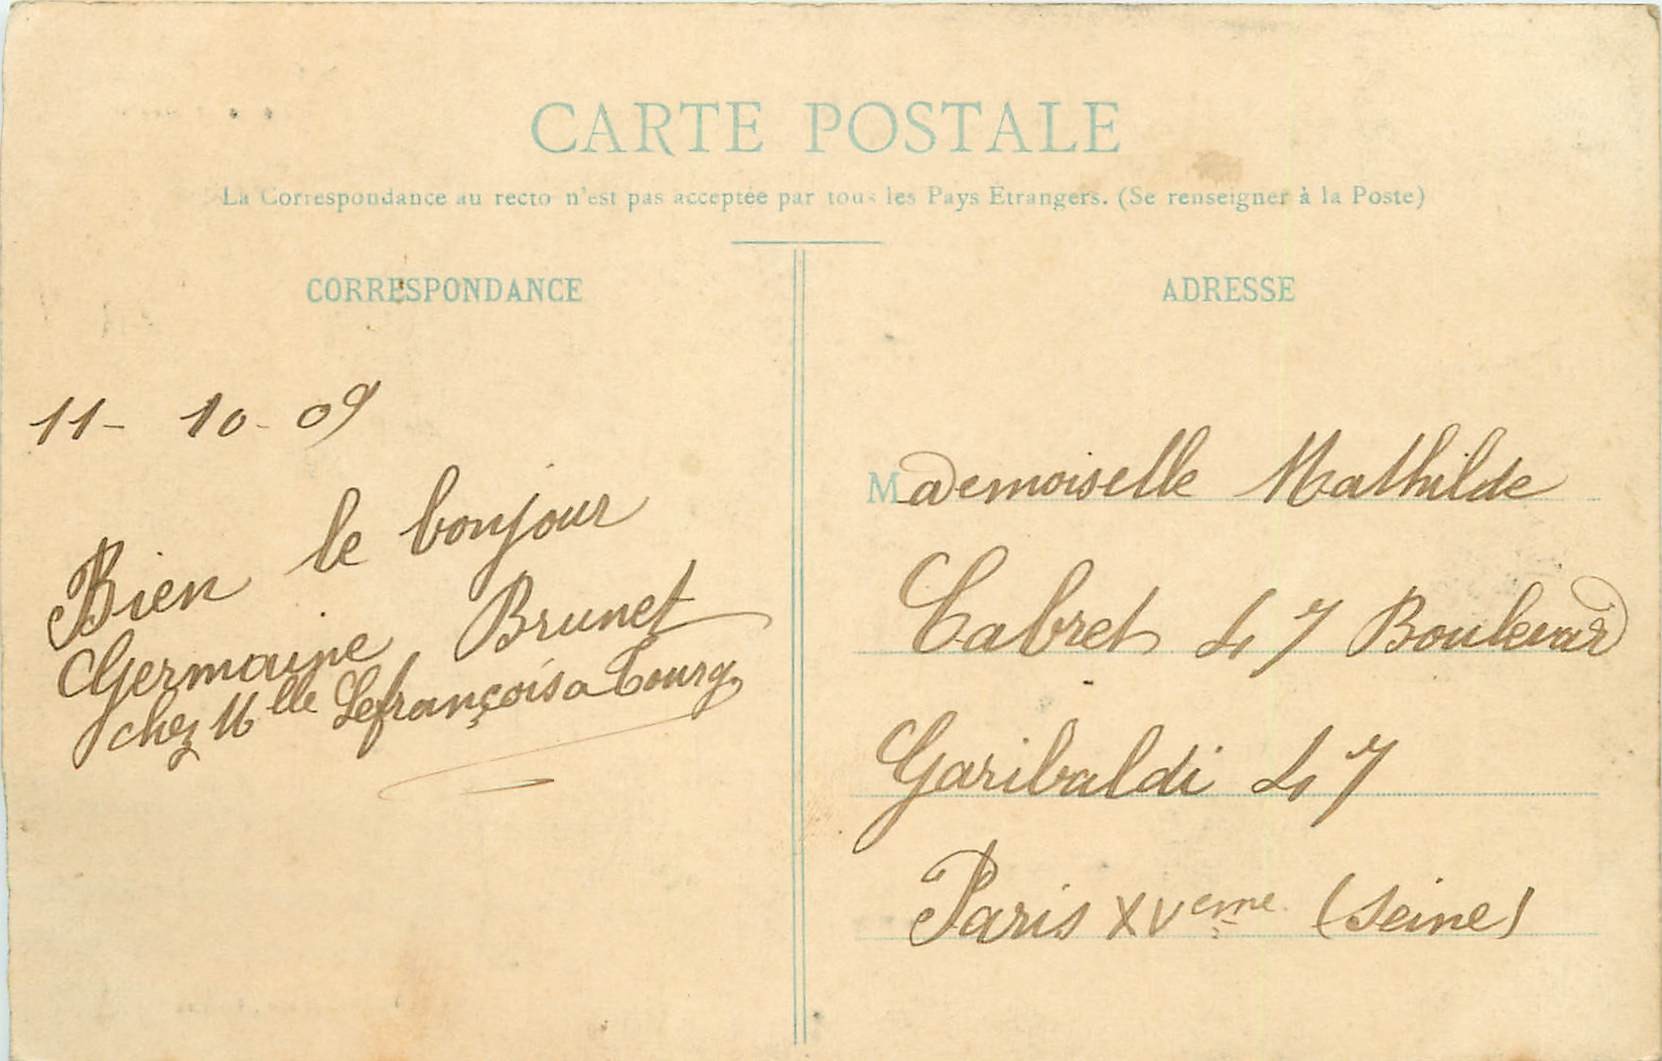 CARTE POSTALE
La Correspondance au recto n'est pas acceptée par tous les Pays Étrangers. (Se renseigner à la Poste)
CORRESPONDANCE
11- 10- 09
Bien le bonjour
Germaine Brunet
chez Mlle Lefrançois a Tourg
ADRESSE
Mademoiselle Mathilde
Cabret 47 Boulevard
Garibaldi 47
Paris XVeme (Seine)